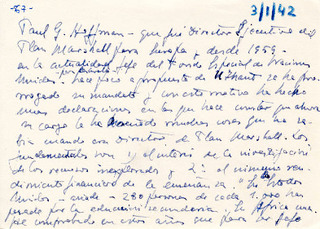 -67-
3/1/42
Paul G. Hoffman - que fué Director Ejecutivo del
Plan Marshall para Europa, desde 1959
en la actualidad Jefe del Fondo Especial de Naciones
Unidas - hace poco a propuesta de U Thant se ha pro-
rrogado su mandato y con este motivo ha hecho
unas declaraciones en las que hace constar que ahora
su cargo le ha muchas cosas que no sa-
bía cuando era Director de Plan Marshall. Los
fundamentales son 1º el interés de la investigación
de los recursos inexplorados y 2º el inmenso ren-
dimiento financiero de la enseñanza. "En Estados
Unidos - añade - 280 personas de cada 1.000 han
pasado por la educación secundaria; En Africa una.
He comprobado en estos años que para ser jefe